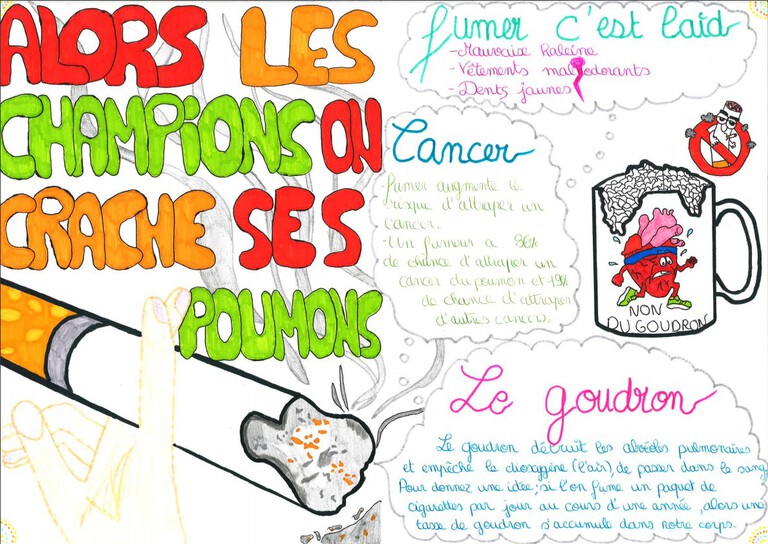 ALORS LES
CHAMPIONS ON
CRACHE SES
POUMONS
fumer c'est laid
- Mauvaise haleine
- Vêtements malodorants
- Dents jaunes
Cancer
fumer augmente le
risque d'attraper un
cancer.
-Un fumeur a 36%
de chance d'attraper un
cancer du poumon et 19%
de chance d'attraper
d'autres cancers.
NON
DU GOUDRON
Le goudron
Le goudron détruit les alvéoles pulmonaires
et empêche le dioxygène (l'air), de passer dans le sang
Pour donnez une idée; si l'on fume un paquet de
cigarettes par jour au cours d'une année, alors une
tasse de goudron s'accumule dans notre corps.